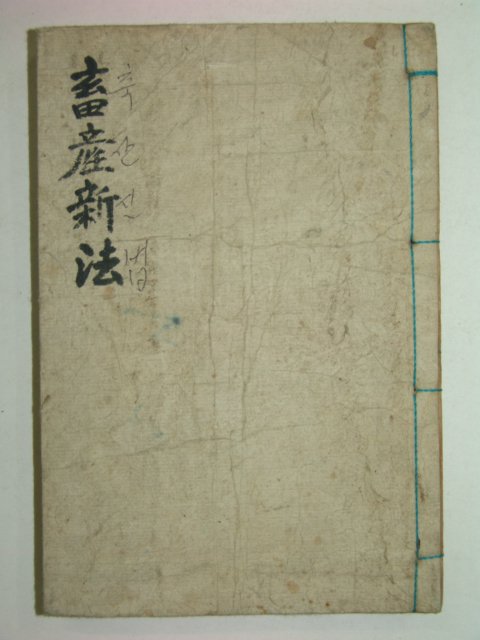 畜産新法
축산신법